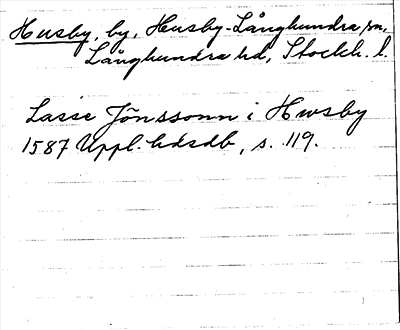 Husby, by, Husby-Långhundra sn,
Långhundra hd, Stockh. l.
Lasse Jönssonn i Hwsby
1587 Uppl. hdsdb, s. 119.